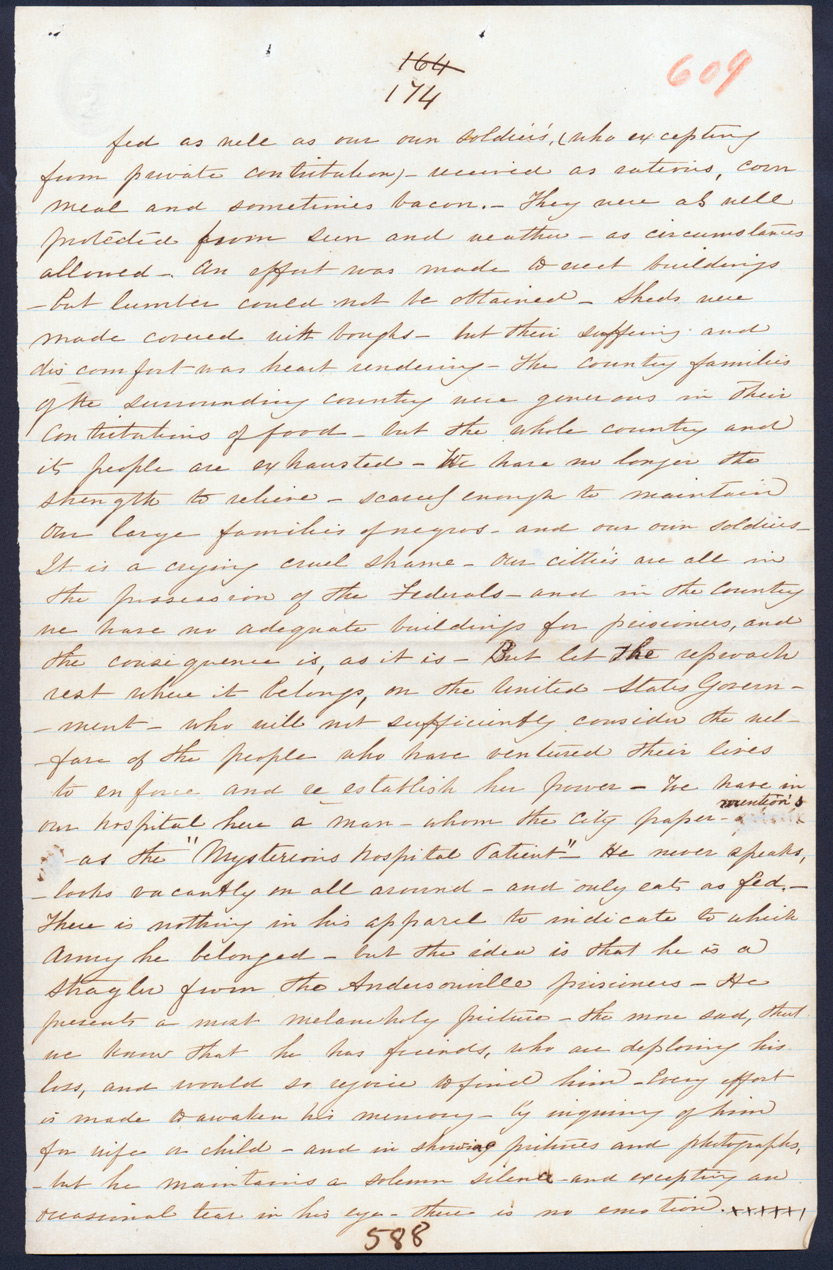 164
174
609
fed as well as our own soldiers, (who excepting
from private contribution) - received as rations, corn
meal and sometimes bacon. - They were as well
protected from sun and weather - as circumstances
allowed - An effort was made to erect buildings
- but lumber could not be obtained - Sheds were
made covered with boughs - but their suffering and
discomfort was heart rendering - The country families
of the surrounding country were generous in their
contributions of food - but the whole country and
its people are exhausted - We have no longer the
strength to relieve - scarcely enough to maintain
our large families of negros - and our own soldiers -
It is a crying cruel shame - Our citties are all in
the possession of the Federals - and in the country
we have no adequate buildings for prisioners, and
the consequence is, as it is - But let the reproach
rest where it belongs, on the United States Govern -
- ment - who will not sufficiently consider the wel -
- fare of the people who have ventured their lives
to enforce and re establish her power - We have in
our hospital here a man - whom the city paper - mention's
- as the "Mysterious Hospital Patient" - He never speaks,
- looks vacantly on all around - and only eats as fed, -
There is nothing in his apparel to indicate to which
Army he belonged - but the idea is that he is a
stragler from the Andersonville prisioners - He
presents a most melancholy picture - the more sad, that
we know that he has friends, who are deploring his
loss, and would so rejoice to find him - Every effort
is made to awaken his memory - by inquiring of him
for wife or child - and in showing pictures and photographs,
- but he maintains a solemn silence - and excepting an
occasional tear in his eye - there is no emotion. xxxxxx
588